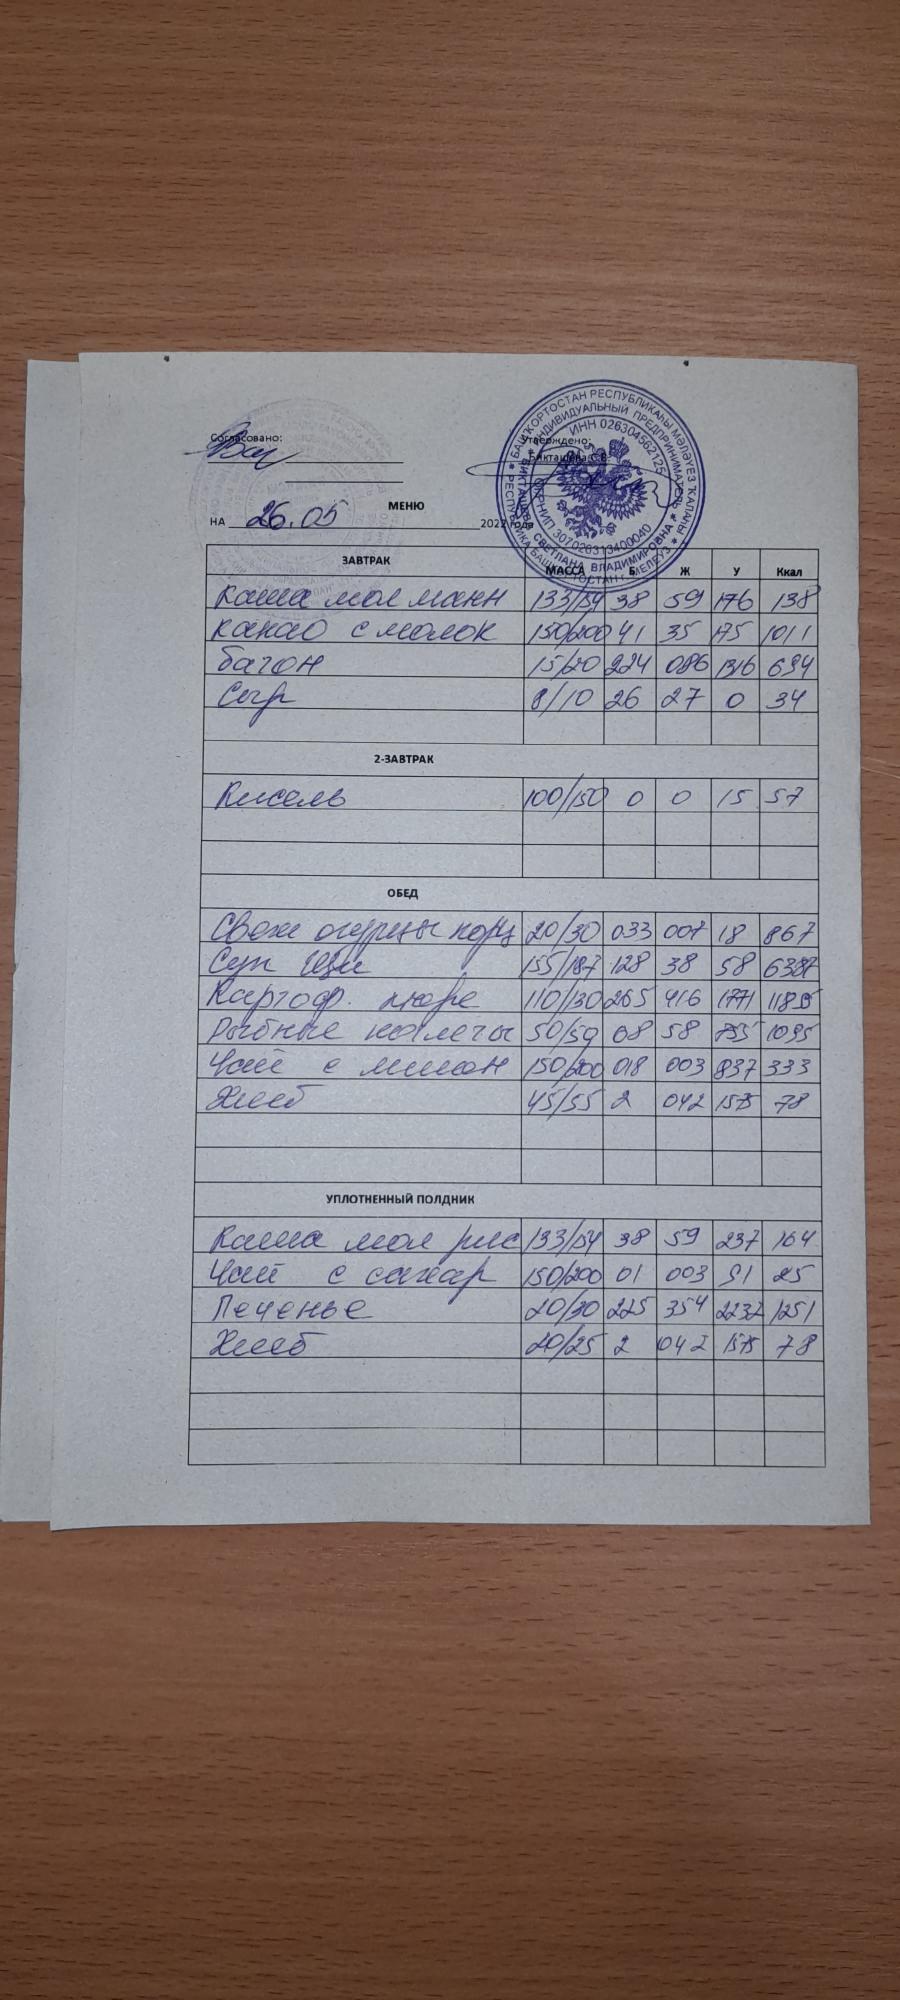 Согласовано: Утверждено:
Бикташева С.В.
МЕНЮ
НА 26.05 2022 года
БАШҠОРТОСТАН РЕСПУБЛИКАҺЫ МӘЛӘҮЕЗ ҠАЛАҺЫ
РЕСПУБЛИКА БАШКОРТОСТАН г. МЕЛЕУЗ
ИНДИВИДУАЛЬНЫЙ ПРЕДПРИНИМАТЕЛЬ
БИКТАШЕВА СВЕТЛАНА ВЛАДИМИРОВНА
ИНН 026304562125
ОГРНИП 307026313400040
ЗАВТРАК МАССА Б Ж У Ккал
Каша мол манн 133/154 38 59 176 138
какао с молок 150/200 41 35 175 1011
батон 15/20 224 086 1316 694
Сыр 8/10 26 27 0 34
2-ЗАВТРАК
Кисель 100/150 0 0 15 57
ОБЕД
Свеж огурцы порц 20/30 033 007 18 867
Суп Щи 155/187 128 38 58 6387
Картоф. пюре 110/130 265 416 1771 1185
Рыбные котлеты 50/50 08 58 755 1095
Чай с лимон 150/200 018 003 837 333
Хлеб 45/55 2 042 1575 78
УПЛОТНЕННЫЙ ПОЛДНИК
Каша мол рис 133/154 38 59 237 164
Чай с сахар 150/200 01 003 91 25
Печенье 20/30 225 354 2232 1251
Хлеб 20/25 2 042 1575 78